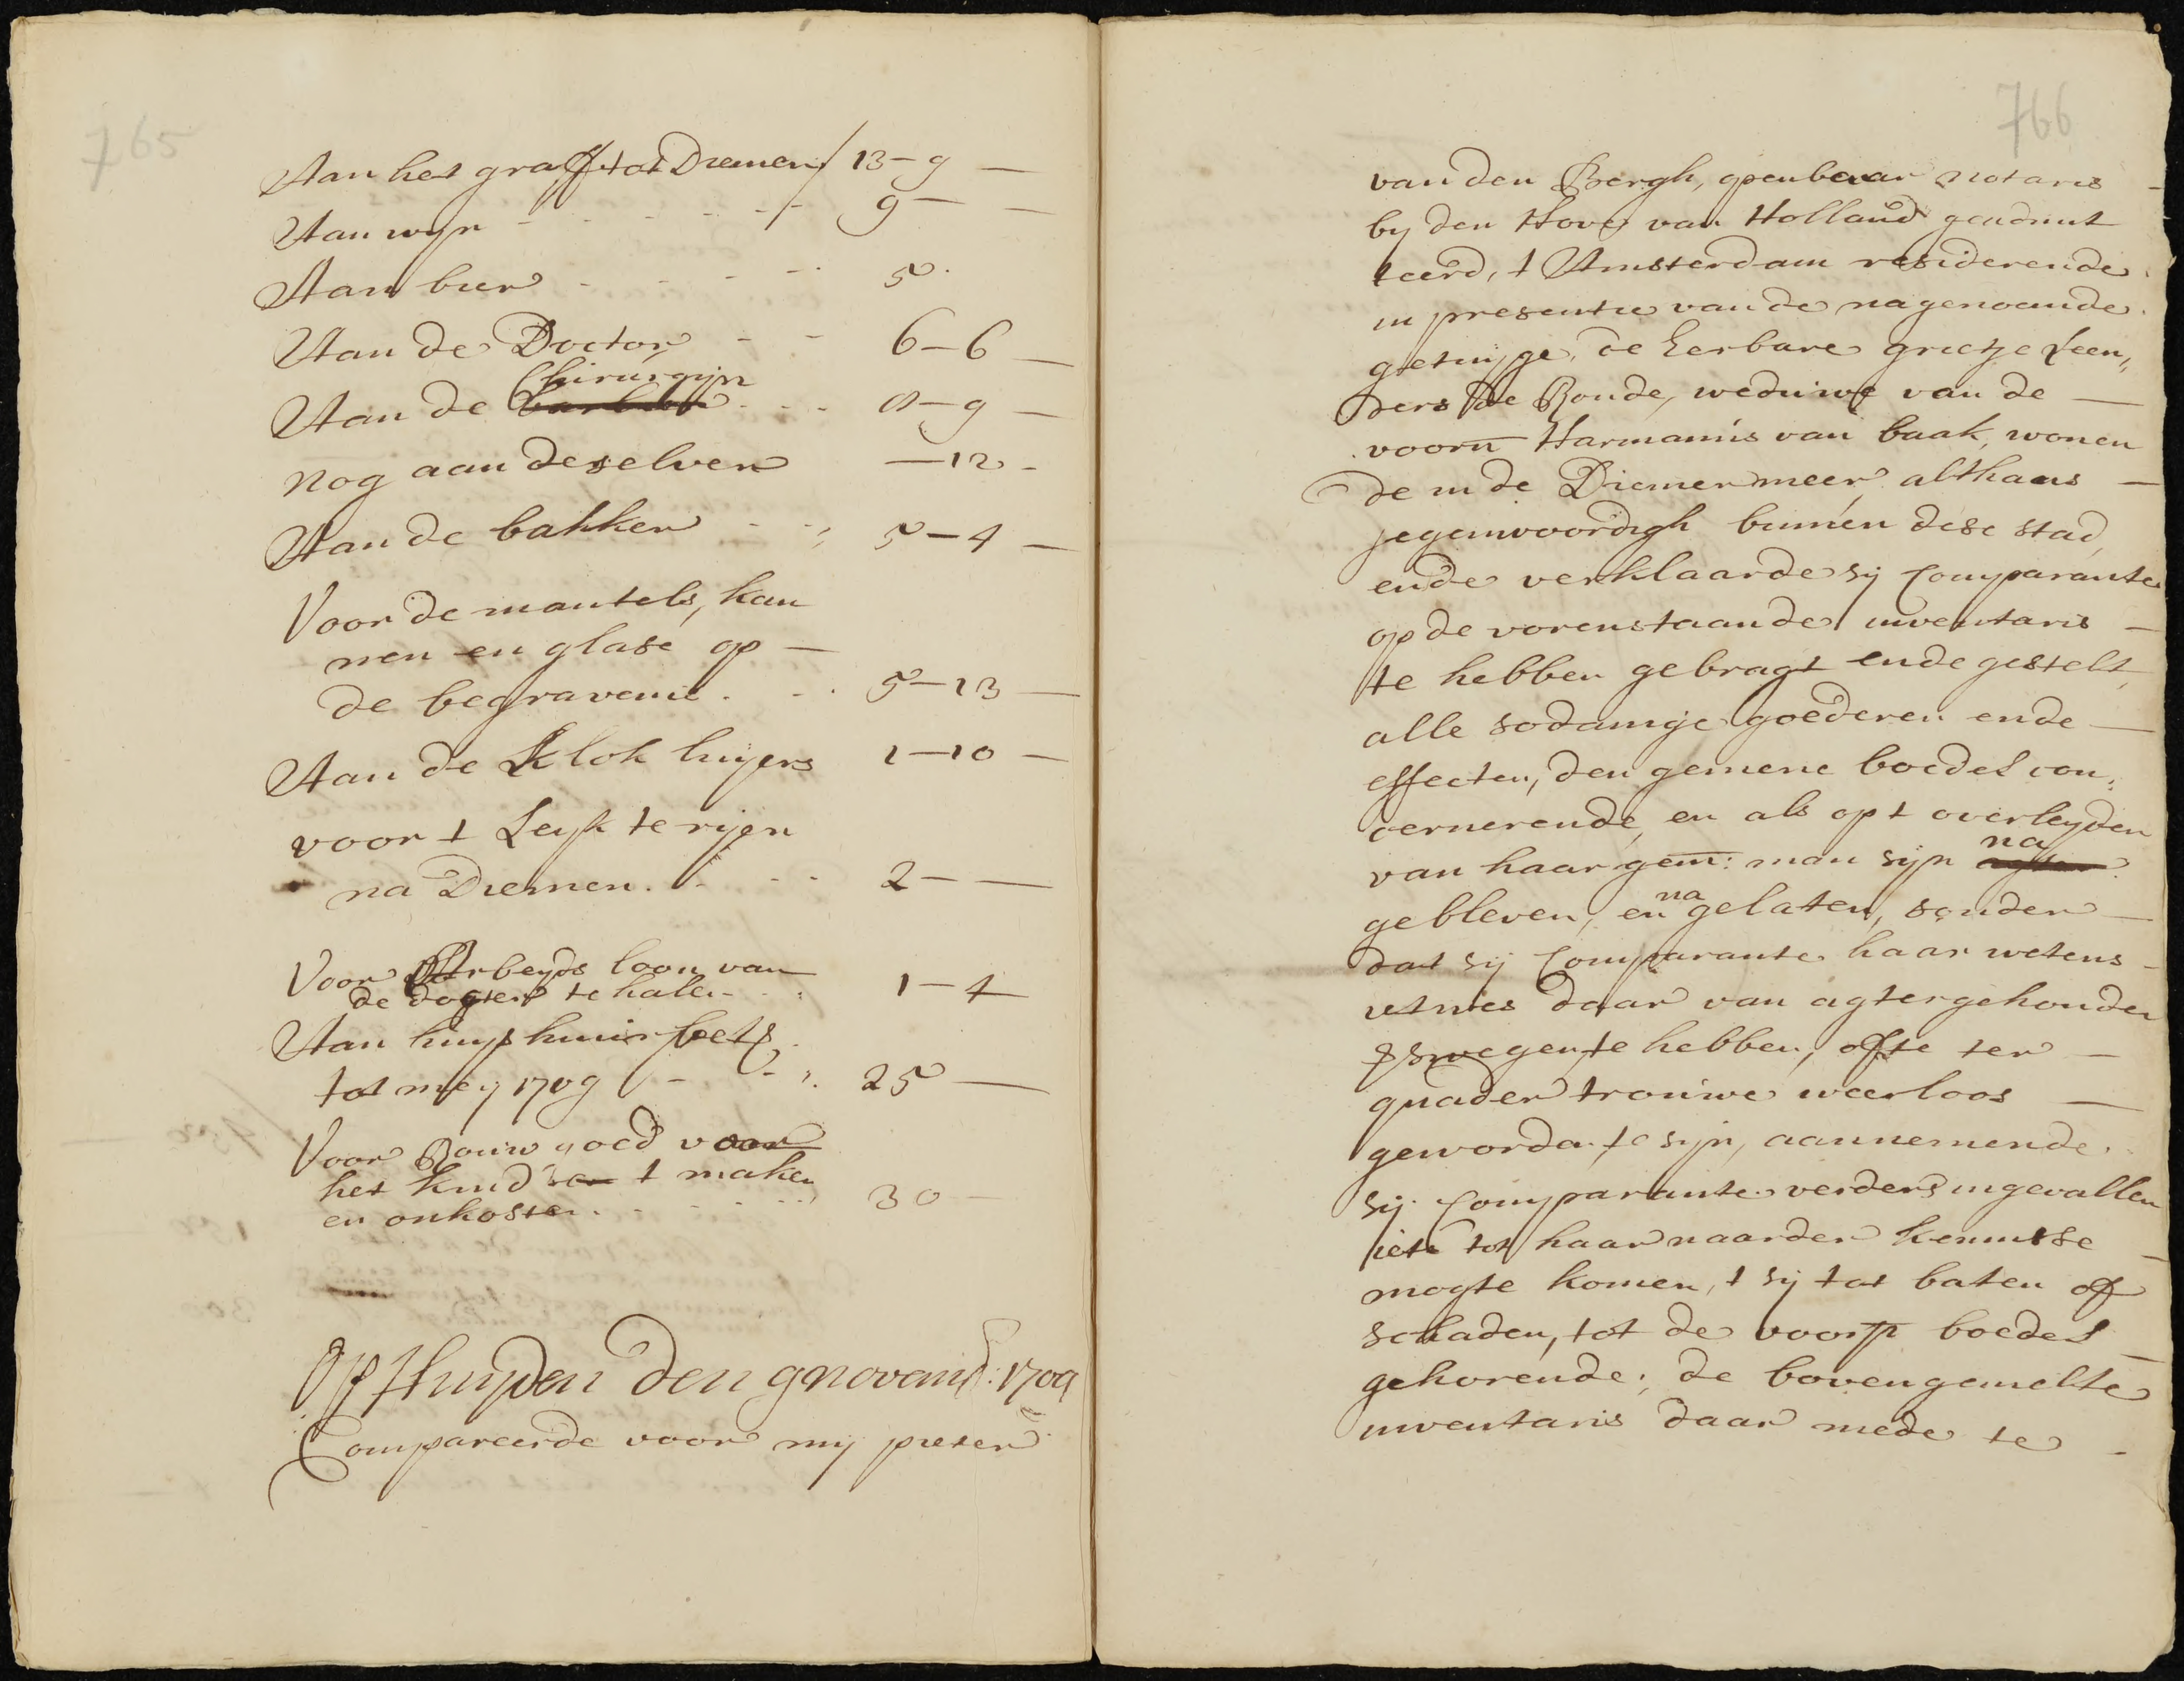 765
Aan het graff tot Diemen / 13-9 -
Aan wyn - - - - - 9 - -
Aan bier - - - - 5
Aan de Doctor - - 6-6 -
Chirurgyn
Aan de barbier - - - 8-9 -
nog aan deselven -12-
Aan de bakker - - 5-4 -
Voor de mantels, kan
nen en glase op -
de begravenis . . . 5-13 -
Aan de klok luyers 1-10 -
voor t Leyk te ryen
na Diemen . . . 2 - -
Voor Arbeyds loon van
de dogter te halen . . 1-4
Aan huys huir
tot mey 1709 - - - 25 -
Voor Rouw goed voor
het kind t maken
en onkosten . . . . . 30 -
Op Huyden den 9 novemb: 1709
Compareerde voor my pieter
766
van den Bergh, openbaar notaris -
by den Hove van Holland geadmit
teerd, t Amsterdam residerende
in presentie van de nagenoemde
getuyge, de Eerbare grietje Leen,,
ders de Ronde, weduwe van de -
voorn Harmanus van baak, wonen
de in de Diemermeer althans -
jegenwoordigh binnen dese stad,
ende verklaarde sij Comparante
op de vorenstaande inventaris -
te hebben gebragt ende gestelt,
alle sodanige goederen ende -
effecten, den gemene boedel con,,
cernerende, en als op t overleyden
van haar gem: man syn na agter
gebleven, en na gelaten, sonder -
dat sij Comparante haar wetens -
ietwes daar van agtergehouden
verswegen te hebben, ofte ter -
quader trouwe weerloos -
geworden te syn, aannemende
sij Comparante verders ingevallen
iets tot haar naarder kennisse -
mogte komen, t sij tot baten of
schaden, tot de voors boedel -
gehorende, de bovengemelte
inventaris daar mede te -